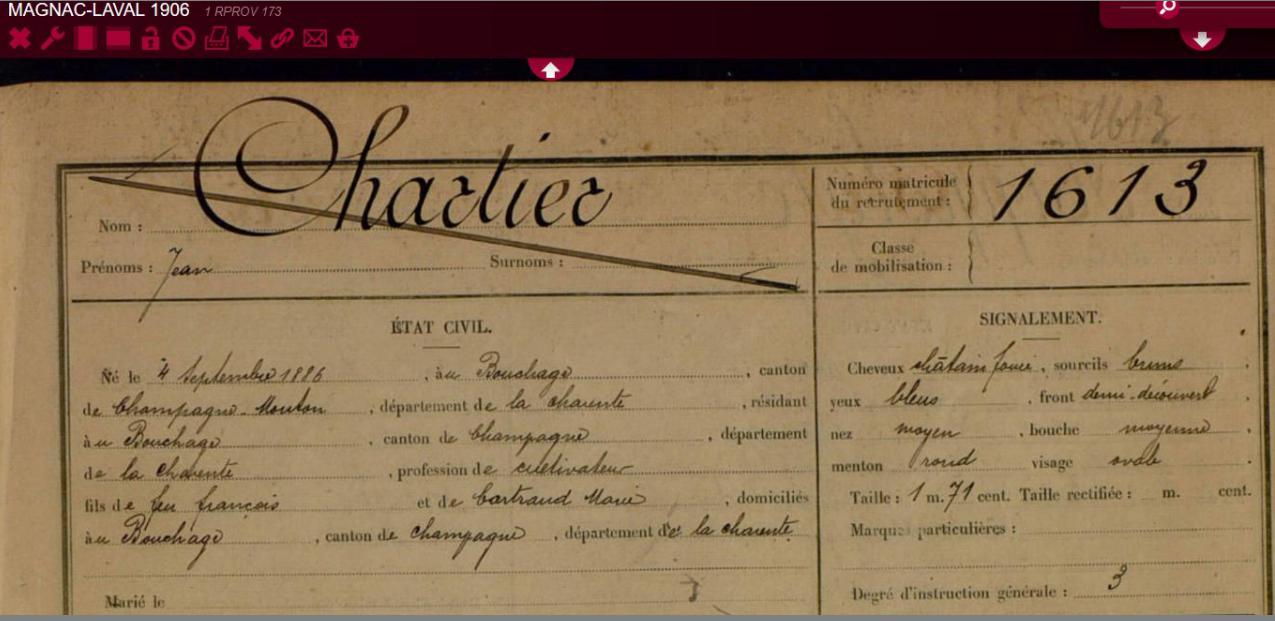 MAGNAC-LAVAL 1906 1 RPROV 173
1613
Nom : Chartier
Prénoms : Jean Surnoms :
Numéro matricule du recrutement : 1613
Classe de mobilisation :
ÉTAT CIVIL.
Né le 4 Septembre 1886, à u Bouchage, canton
de Champagne-Mouton, département de la charente, résidant
à u Bouchage, canton de Champagne, département
de la charente, profession de cultivateur
fils de feu françois et de Bartraud Marie, domiciliés
à u Bouchage, canton de champagne, département de la charente
Marié le
SIGNALEMENT.
Cheveux châtain foncé, sourcils bruns,
yeux bleus, front demi-découvert,
nez moyen, bouche moyenne,
menton rond visage ovale.
Taille : 1 m. 71 cent. Taille rectifiée : m. cent.
Marques particulières :
Degré d'instruction générale : 3